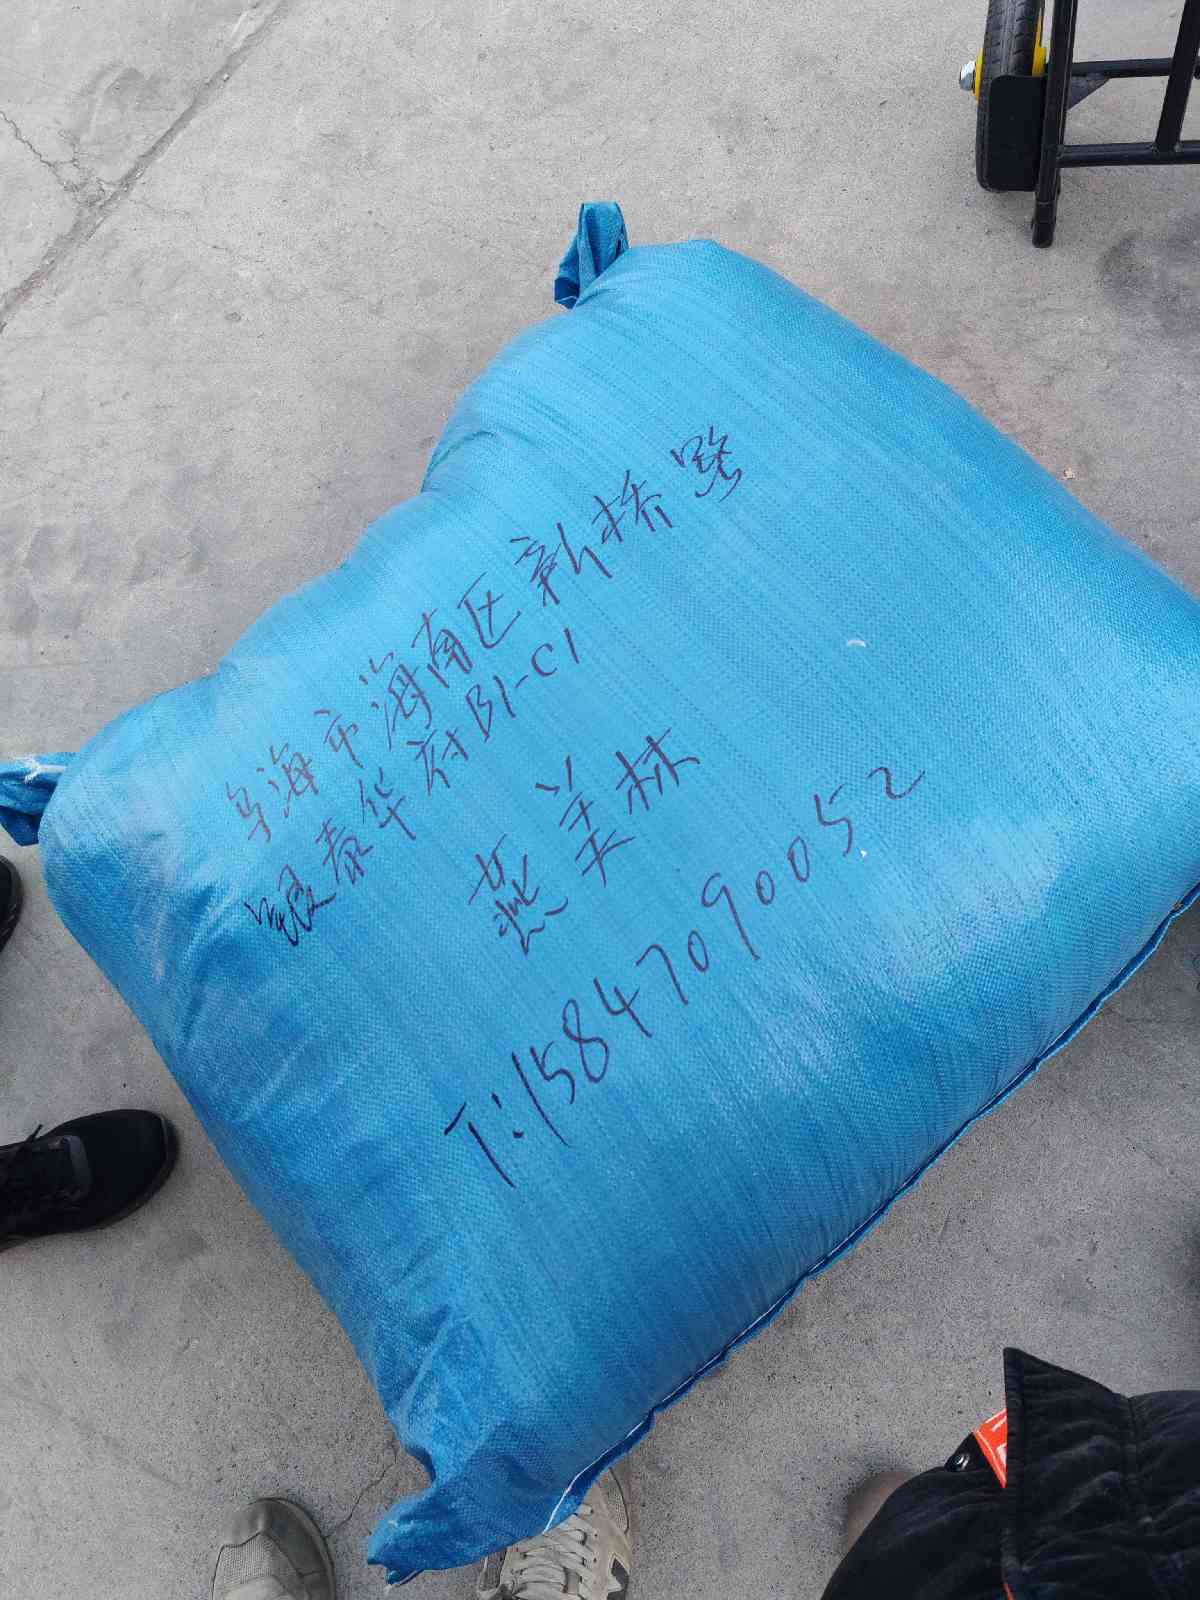 乌海市海南区新桥路
银泰华府B1-C1
燕美林
T:15847090052